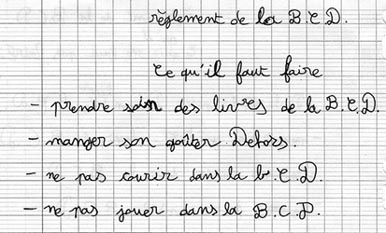 règlement de la B.C.D.
Ce qu'il faut faire
- prendre soin des livres de la B.C.D.
- manger son goûter Dehors.
- ne pas courir dans la b.C.D.
- ne pas jouer dans la B.C.D.